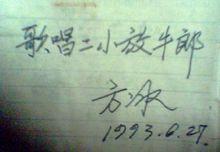 歌唱二小放牛郎
方冰
1993.6.27.